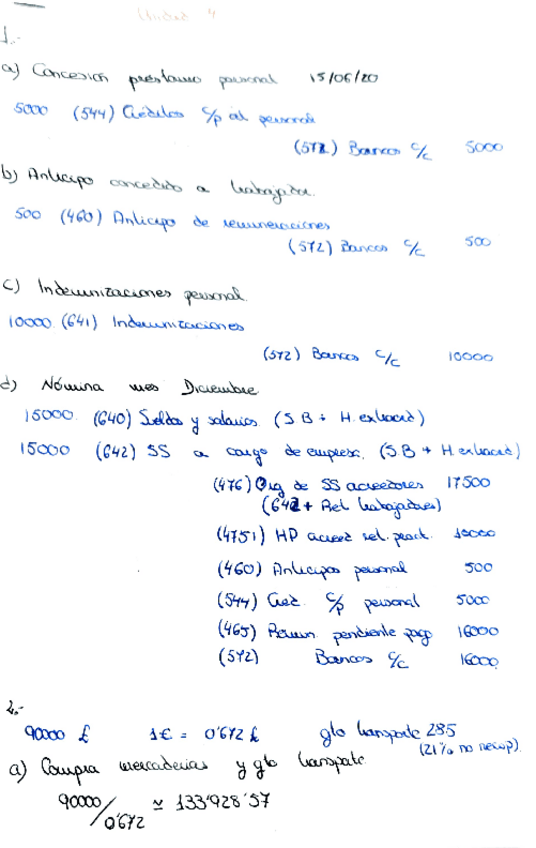 Unidad 4
1.-
a) Concesión préstamo personal 15/06/20
5000 (544) Créditos c/p al personal
(572) Bancos c/c 5000
b) Anticipo concedido a trabajador.
500 (460) Anticipo de remuneraciones
(572) Bancos c/c 500
c) Indemnizaciones personal.
10000 (641) Indemnizaciones
(572) Bancos c/c 10000
d) Nómina mes Diciembre
15000. (640) Sueldos y salarios (SB + H. extraord)
15000 (642) SS a cargo de empresa. (SB + H extraord)
(476) Org de SS acreedores 17500
(642 + Ret trabajadores)
(4751) HP acreed ret. pract. 10000
(460) Anticipos personal 500
(544) Cred. c/p personal 5000
(465) Remun. pendiente pago 16000
(572) Bancos c/c 16000
2.-
90000 £ 1€ = 0'672 £ gto transporte 285
(21% no recup).
a) Compra mercaderías y gto transporte
90000/0'672 ≃ 133'928'57